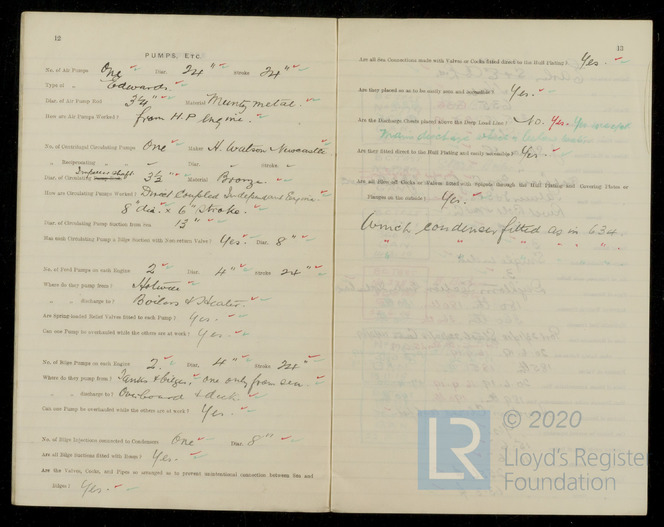 12
PUMPS, ETC.
No. of Air Pumps One Diar. 24" Stroke 24"
Type of " Edwards.
Diar. of Air Pump Rod 3¼" Material Muntz metal.
How are Air Pumps Worked? from H.P Engine.
No. of Centrifugal Circulating Pumps One Maker H. Watson Newcastle
" Reciprocating " Diar. Stroke.
Impeller shaft
Diar. of Circulating 3½" Material Bronze.
How are Circulating Pumps Worked? Direct Coupled Independent Engine.
8" dia. x 6" Stroke.
Diar. of Circulating Pump Suction from sea 13"
Has each Circulating Pump a Bilge Suction with Non-return Valve? Yes. Diar. 8"
No. of Feed Pumps on each Engine 2 Diar. 4" Stroke 24"
Where do they pump from? Hotwell
" discharge to? Boilers & Heater.
Are Spring-loaded Relief Valves fitted to each Pump? Yes.
Can one Pump be overhauled while the others are at work? Yes.
No. of Bilge Pumps on each Engine 2. Diar. 4" Stroke 24"
Where do they pump from? Tanks & bilges, one only from sea.
" discharge to? Overboard & deck.
Can one Pump be overhauled while the others are at work? Yes.
No. of Bilge Injections connected to Condensers One Diar. 8"
Are all Bilge Suctions fitted with Roses? Yes.
Are the Valves, Cocks, and Pipes so arranged as to prevent unintentional connection between Sea and
Bilges? Yes.
13
Are all Sea Connections made with Valves or Cocks fitted direct to the Hull Plating? Yes.
Are they placed so as to be easily seen and accessible? Yes.
Are the Discharge Chests placed above the Deep Load Line? No. Yes. Yes except
Main discharge which is below
Are they fitted direct to the Hull Plating and easily accessible? Yes.
Are all Blow-off Cocks or Valves fitted with Spigots through the Hull Plating and Covering Plates or
Flanges on the outside? Yes.
Winch condenser fitted as in 634.
" " " " "
© 2020
LR
Lloyd's Register
Foundation